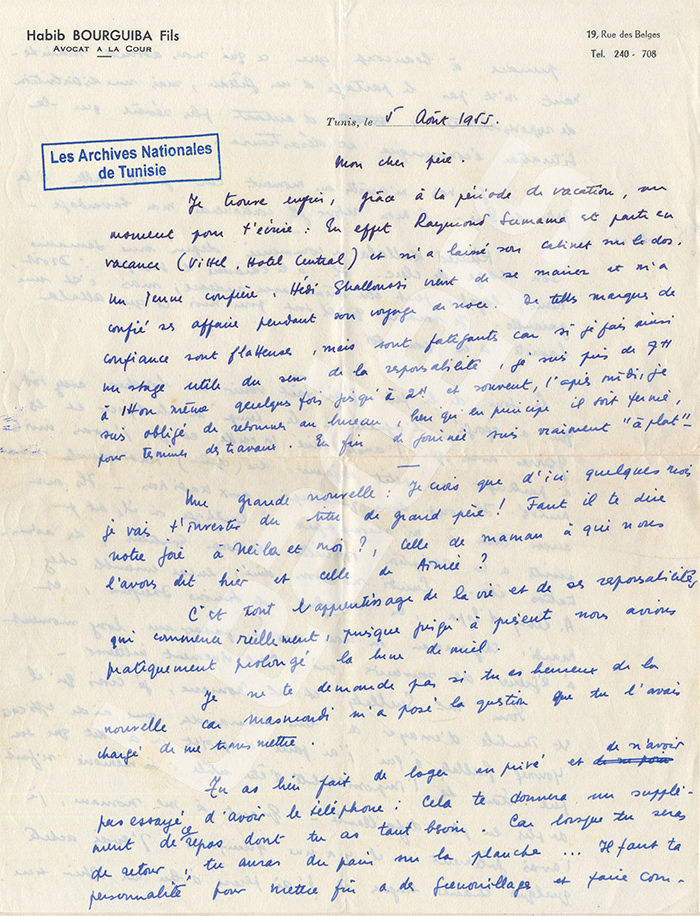 Habib BOURGUIBA Fils
AVOCAT A LA COUR
19, Rue des Belges
Tel. 240 - 708
Tunis, le 5 Août 1955.
Les Archives Nationales
de Tunisie
Mon cher père.
Je trouve enfin, grâce à la période de vacation, un
moment pour t'écrire : En effet Raymond Semama est parti en
vacance (Vittel, Hotel Central) et m'a laissé son cabinet sur le dos.
Un jeune confrère, Hédi Ghalloussi vient de se marier et m'a
confié ses affaire pendant son voyage de noce. De telles marques de
confiance sont flatteuses, mais sont fatigants car si je fais ainsi
un stage utile du sens de la reponsabilité, je suis pris de 7H
à 1H ou même quelques fois jusqu'à 2H et souvent, l'après midi, je
suis obligé de retourner au bureau, bien qu'en principe il soit fermé,
pour terminer des travaux. En fin de journée suis vraiment "à plat" -
Une grande nouvelle : Je crois que d'ici quelques mois
je vais t'investir du titre de grand père ! Faut il te dire
notre joie à Neila et moi ?, celle de maman à qui nous
l'avons dit hier et celle de ?
C'est tout l'apprentissage de la vie et de ses reponsabilités
qui commence réellement, puisque jusqu'à présent nous avions
pratiquement prolongé la lune de miel.
Je ne te demande pas si tu es heureux de la
nouvelle car Masmoudi m'a posé la question que tu l'avais
chargé de me transmettre.
Tu as bien fait de loger en privé et de n'avoir
pas essayé d'avoir le téléphone : Cela te donnera un supplé-
ment de repos dont tu as tant besoin. Car lorsque tu seras
de retour, tu auras du pain sur la planche ... Il faut ta
personnalité pour mettre fin a de Grenouillages et faire com-